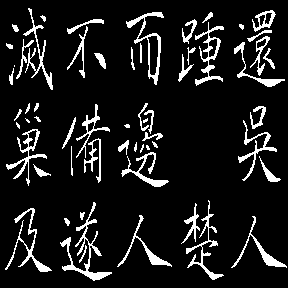 還吳人
踵楚
而邊人
不備遂
滅巢及